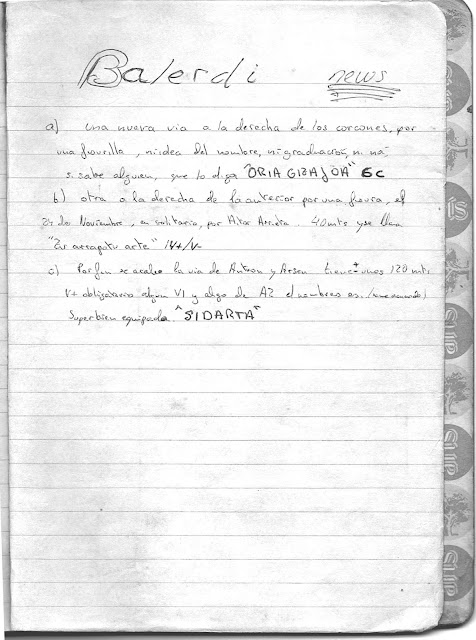 Balerdi news
a) una nueva via a la derecha de los corcones, por
una fisurilla, ni idea del nombre, ni graduación, ni ná,
si sabe alguien, que lo diga "ORIA GIZAJOA" 6C
b) otra a la derecha de la anterior por una fisura, el
de Noviembre, en solitario, por Aitor Arrieta. 40mts y se llama
"Zu aezapatu arte" IV+/V-
c) Por fin se acabo la via de Antxon y Arsen tiene ± unos 120 mts
V+ obligatorio algun V1 y algo de A2 el nombre es.
Superbien equipada. "SIDARTA"
SUP
SUP
SUP
SUP